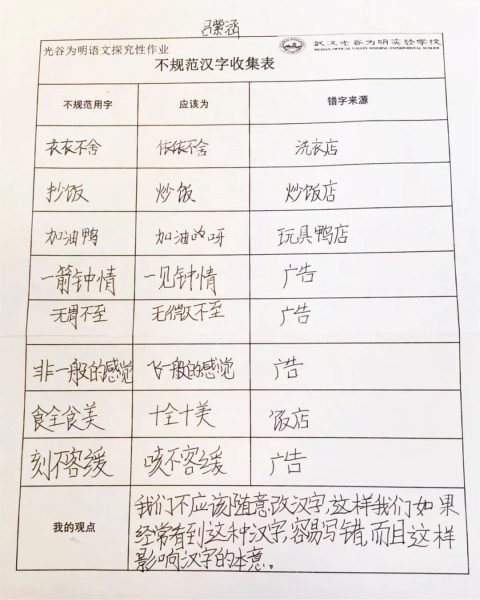 吕紫涵
光谷为明语文探究性作业
武汉光谷为明实验学校
不规范汉字收集表
不规范用字 应该为 错字来源
衣衣不舍 依依不舍 洗衣店
抄饭 炒饭 炒饭店
加油鸭 加油呀 玩具鸭店
一箭钟情 一见钟情 广告
无胃不至 无微不至 广告
非一般的感觉 飞一般的感觉 广告
食全食美 十全十美 饭店
刻不容缓 咳不容缓 广告
我的观点
我们不应该随意改汉字,这样我们如果
经常看到这种汉字,容易写错,而且这样
影响汉字的本意。